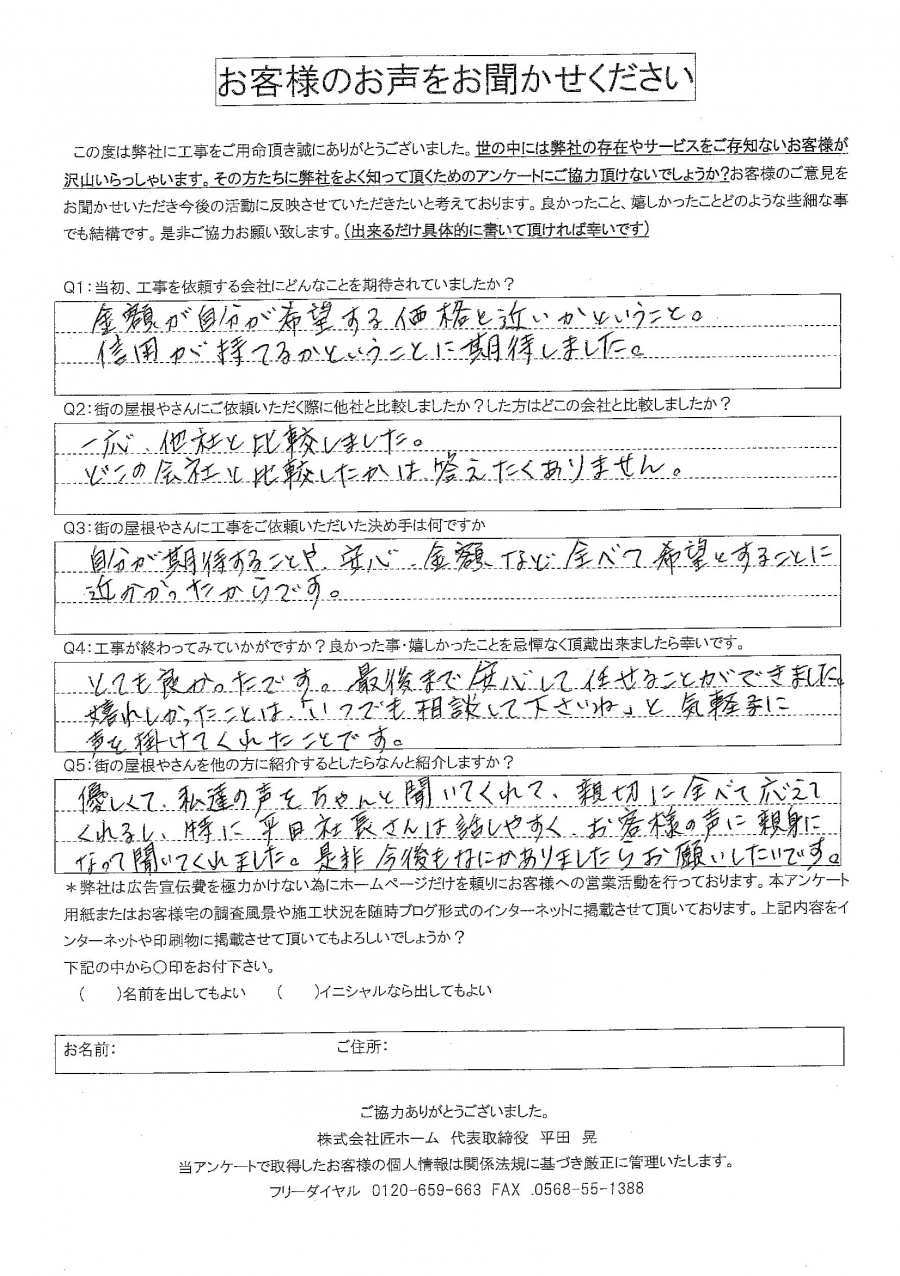 お客様のお声をお聞かせください
この度は弊社に工事をご用命頂き誠にありがとうございました。世の中には弊社の存在やサービスをご存知ないお客様が
沢山いらっしゃいます。その方たちに弊社をよく知って頂くためのアンケートにご協力頂けないでしょうか?お客様のご意見を
お聞かせいただき今後の活動に反映させていただきたいと考えております。良かったこと、嬉しかったことどのような些細な事
でも結構です。是非ご協力お願い致します。(出来るだけ具体的に書いて頂ければ幸いです)
Q1:当初、工事を依頼する会社にどんなことを期待されていましたか?
金額が自分が希望する価格と近いかということ。
信用が持てるかということに期待しました。
Q2:街の屋根やさんにご依頼いただく際に他社と比較しましたか?した方はどこの会社と比較しましたか?
一応、他社と比較しました。
どこの会社と比較したかは答えたくありません。
Q3:街の屋根やさんに工事をご依頼いただいた決め手は何ですか
自分が期待することや、安心、金額など全べて希望とすることに
近かかったからです。
Q4:工事が終わってみていかがですか?良かった事・嬉しかったことを忌憚なく頂戴出来ましたら幸いです。
とても良かったです。最後まで安心して任せることができました。
嬉れしかったことは、「いつでも相談して下さいね」と気軽るに
声を掛けてくれたことです。
Q5:街の屋根やさんを他の方に紹介するとしたらなんと紹介しますか?
優しくて、私達の声をちゃんと聞いてくれて、親切に全べて応えて
くれるし、特に平田社長さんは話しやすく、お客様の声に親身に
なって聞いてくれました。是非今後もなにかありましたらお願いしたいです。
*弊社は広告宣伝費を極力かけない為にホームページだけを頼りにお客様への営業活動を行っております。本アンケート
用紙またはお客様宅の調査風景や施工状況を随時ブログ形式のインターネットに掲載させて頂いております。上記内容をイ
ンターネットや印刷物に掲載させて頂いてもよろしいでしょうか?
下記の中から〇印をお付下さい。
( )名前を出してもよい ( )イニシャルなら出してもよい
お名前: ご住所:
ご協力ありがとうございました。
株式会社匠ホーム 代表取締役 平田 晃
当アンケートで取得したお客様の個人情報は関係法規に基づき厳正に管理いたします。
フリーダイヤル 0120-659-663 FAX .0568-55-1388